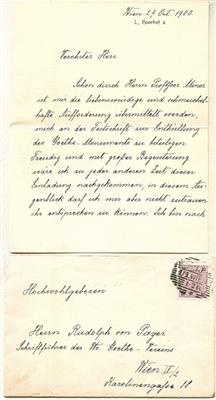 Wien 27. Oct. 1900.
I., Bauerhof 2
Verehrter Herr
Schon durch Herrn Professor Minor
ist mir die liebenswürdige und schmeichel-
hafte Aufforderung übermittelt worden,
mich an der Festschrift zur Enthüllung
des Goethe-Monuments zu beteiligen
Freudig und mit großer Begeisterung
wäre ich zu jeder anderen Zeit dieser
Einladung nachgekommen, in diesem Au-
genblick darf ich mir aber nicht zutrauen
ihr entsprechen zu können. Ich bin nach
Hochwohlgeboren
Herrn Rudolph von Payer
Schriftführer des Wr. Goethe-Vereins
Wien
Karolinengasse 18